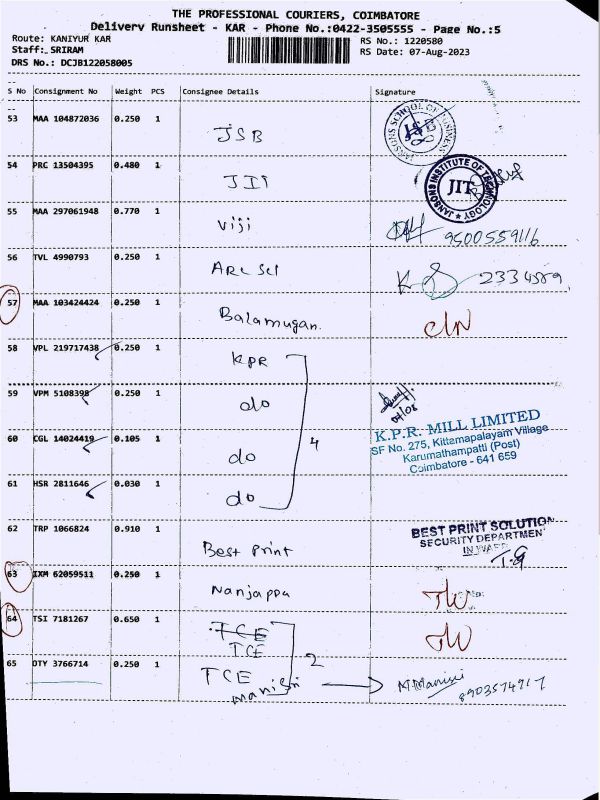 THE PROFESSIONAL COURIERS, COIMBATORE
Delivery Runsheet - KAR - Phone No.:0422-3505555 - Page No.:5
Route: KANIYUR KAR
RS No.: 1220580
Staff: SRIRAM
RS Date: 07-Aug-2023
DRS No.: DCJB122058005
S No Consignment No Weight PCS Consignee Details Signature
53 MAA 104872036 0.250 1 JSB
JANSONS SCHOOL OF BUSINESS
JSB
54 PRC 13504395 0.480 1 JIT
JANSONS INSTITUTE OF TECHNOLOGY
JIT
55 MAA 297061948 0.770 1 Viji 9500559116
56 TVL 4990793 0.250 1 2334589
57 MAA 103424424 0.250 1 Balamugan
58 VPL 219717438 0.250 1 KPR
59 VPM 5108398 0.250 1 do
60 CGL 14024419 0.105 1 do
4
K.P.R. MILL LIMITED
SF No. 275, Kittampalayam Village
Karumathampatti (Post)
Coimbatore - 641 659
61 HSR 2811646 0.030 1 do
62 TRP 1066824 0.910 1 Best print
BEST PRINT SOLUTION
SECURITY DEPARTMENT
INWARD
63 IXM 62059511 0.250 1 Nanjappa
64 TSI 7181267 0.650 1 TCE
TCE
2
65 DTY 3766714 0.250 1 TCE
8903574917